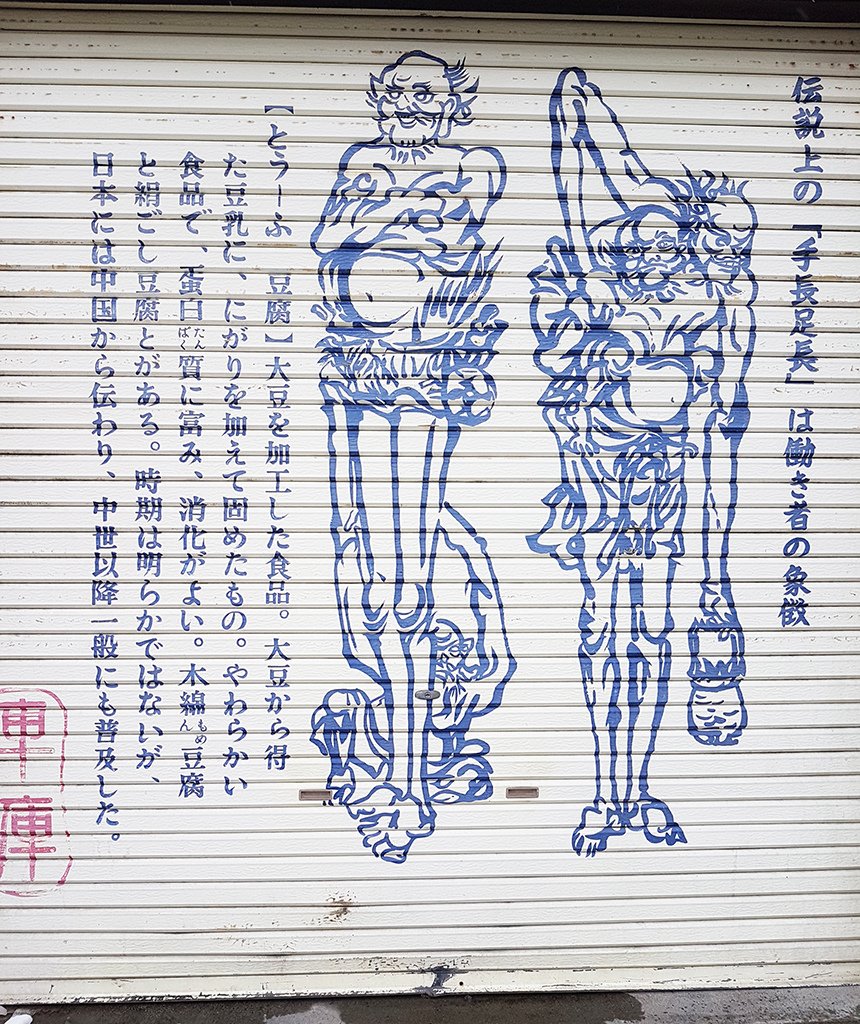 伝説上の『手長足長』は働き者の象徴
【とうーふ 豆腐】大豆を加工した食品。大豆から得
た豆乳に、にがりを加えて固めたもの。やわらかい
食品で、蛋白質に富み、消化がよい。木綿豆腐
たんぱく
もめん
と絹ごし豆腐とがある。時期は明らかではないが、
日本には中国から伝わり、中世以降一般にも普及した。